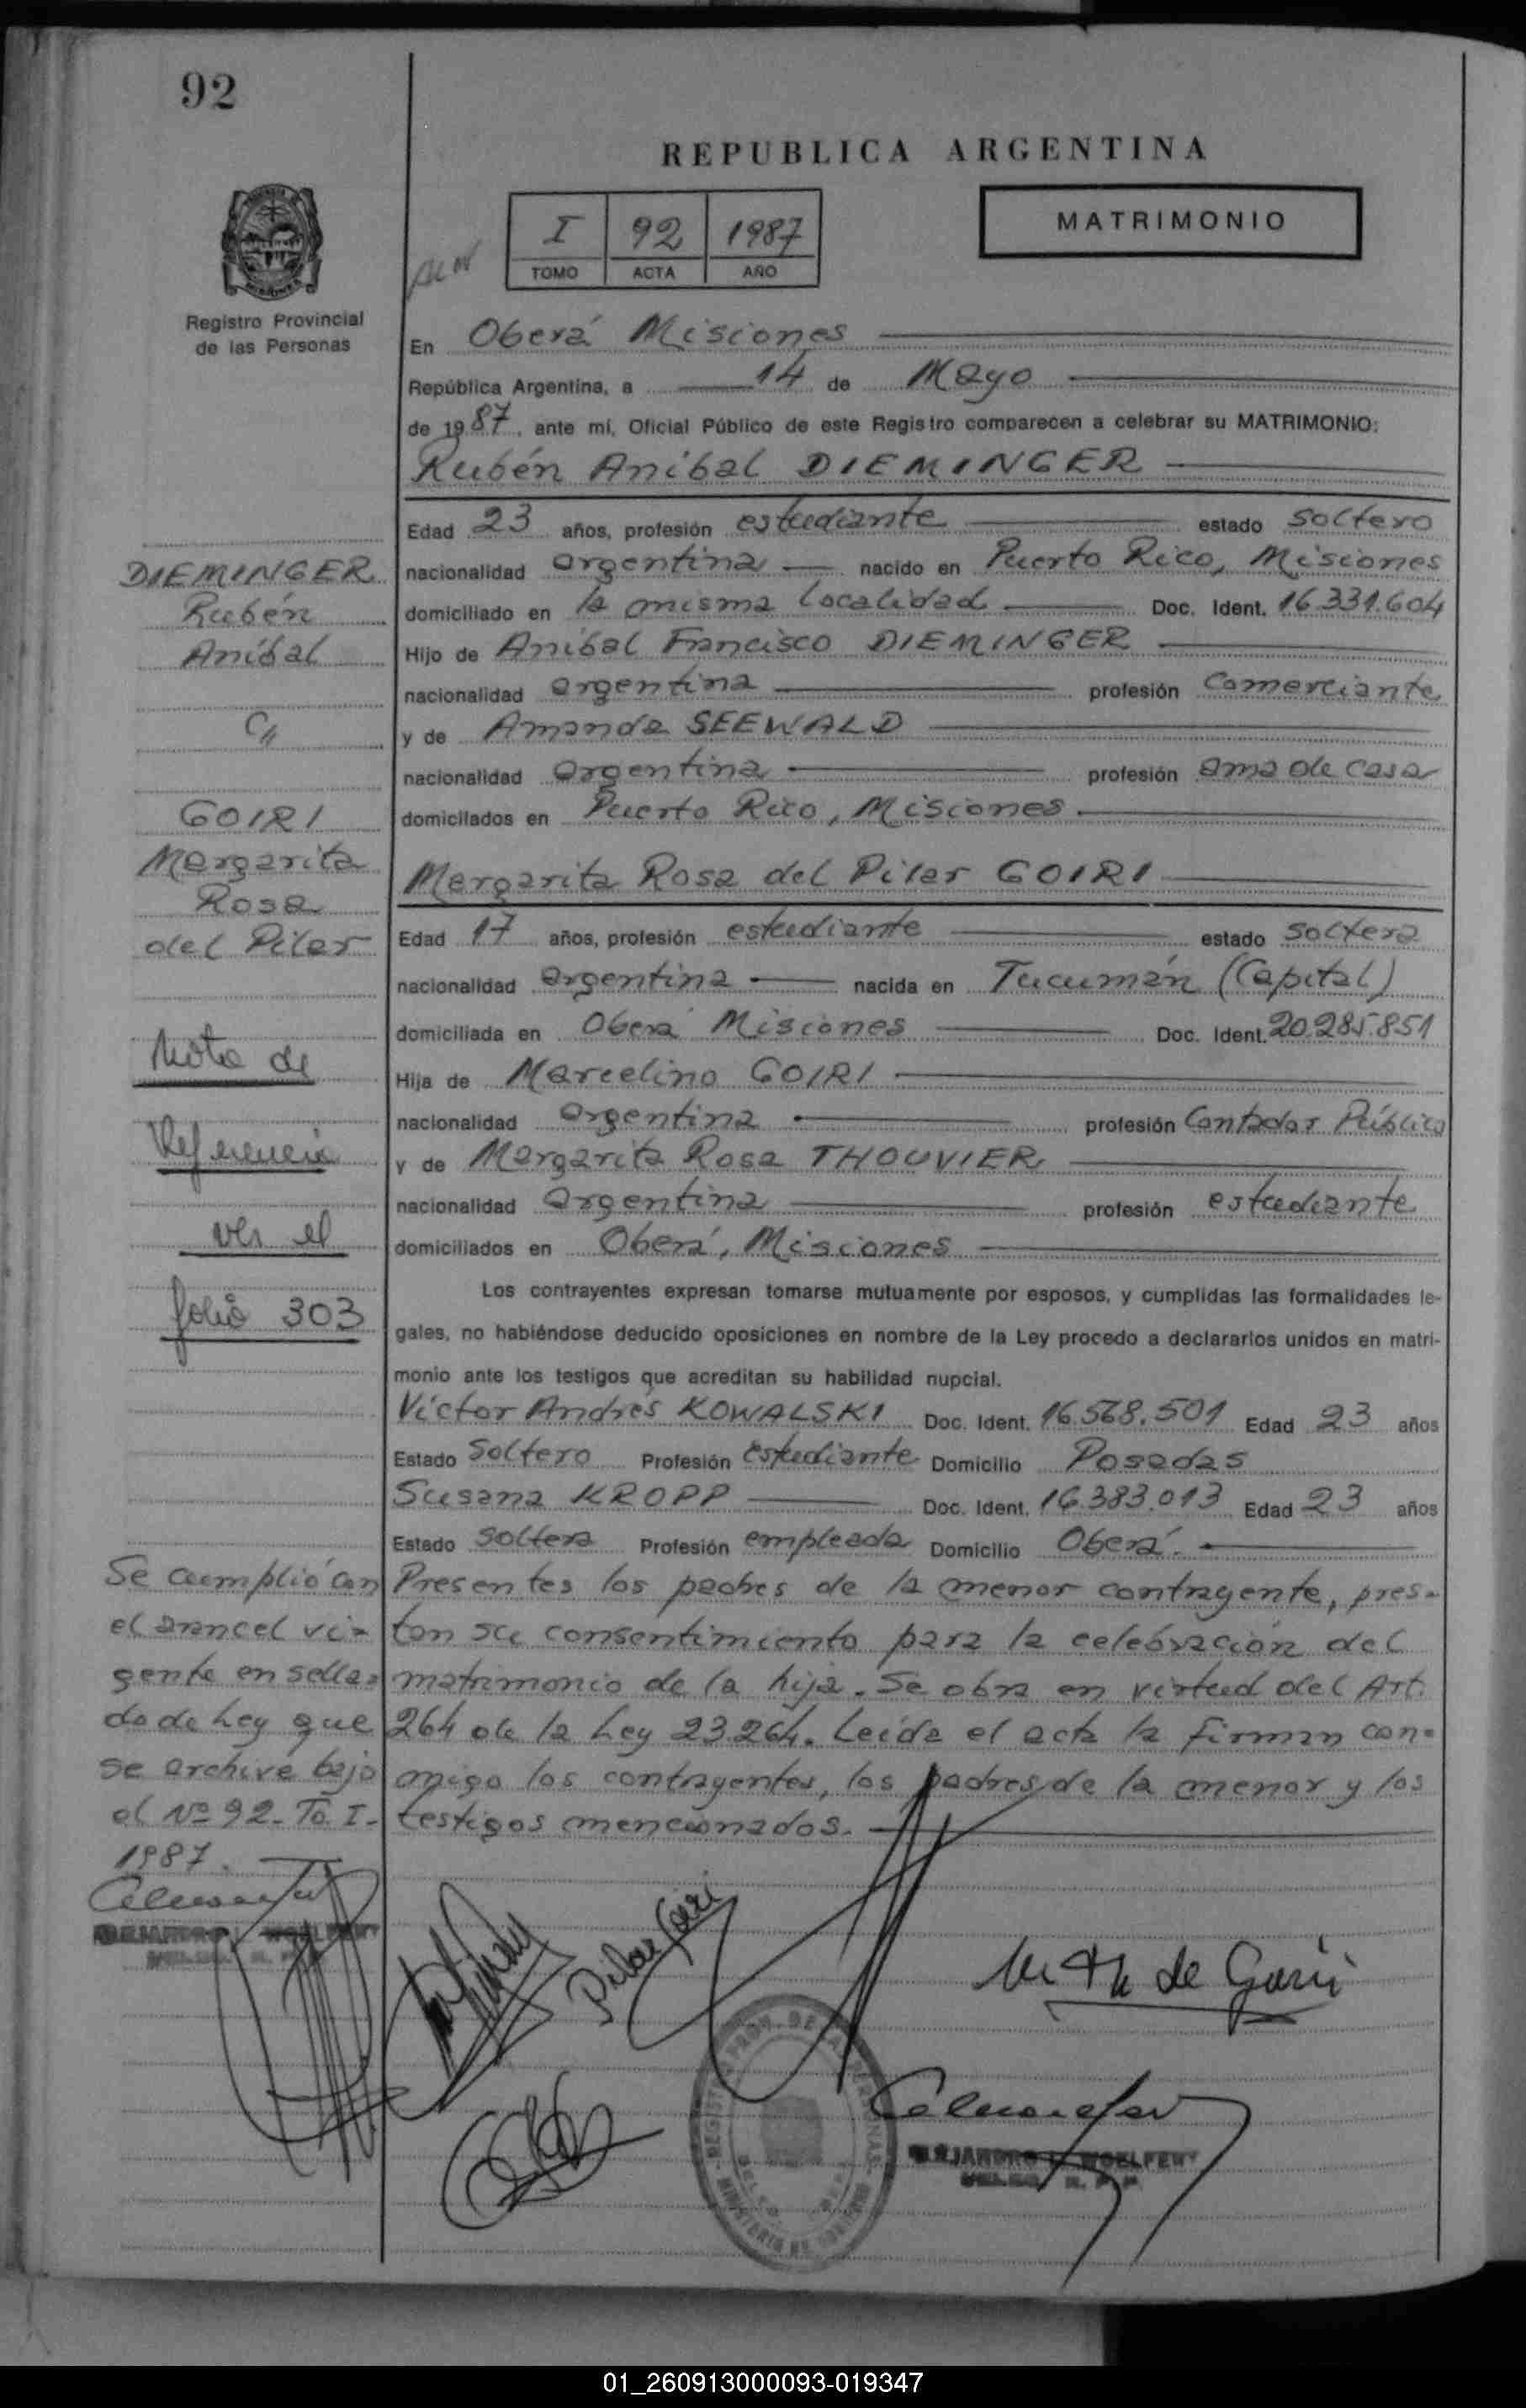 92
REPUBLICA ARGENTINA
MATRIMONIO
I 92 1987
TOMO ACTA AÑO
Registro Provincial
de las Personas
En Oberá Misiones
República Argentina, a 14 de Mayo
de 1987, ante mí, Oficial Público de este Registro comparecen a celebrar su MATRIMONIO:
Rubén Aníbal DIEMINGER
Edad 23 años, profesión estudiante estado soltero
nacionalidad argentina nacido en Puerto Rico, Misiones
domiciliado en la misma localidad Doc. Ident. 16.331.604
Hijo de Aníbal Francisco DIEMINGER
nacionalidad argentina profesión Comerciante
y de Amanda SEEWALD
nacionalidad argentina profesión ama de casa
domiciliados en Puerto Rico, Misiones
Margarita Rosa del Pilar GOIRI
Edad 17 años, profesión estudiante estado soltera
nacionalidad argentina nacida en Tucumán (Capital)
domiciliada en Oberá Misiones Doc. Ident. 20.285.851
Hija de Marcelino GOIRI
nacionalidad argentina profesión Contador Público
y de Margarita Rosa THOUVIER
nacionalidad argentina profesión estudiante
domiciliados en Oberá, Misiones
Los contrayentes expresan tomarse mutuamente por esposos, y cumplidas las formalidades le-
gales, no habiéndose deducido oposiciones en nombre de la Ley procedo a declararlos unidos en matri-
monio ante los testigos que acreditan su habilidad nupcial.
Víctor Andrés KOWALSKI Doc. Ident. 16.568.501 Edad 23 años
Estado Soltero Profesión estudiante Domicilio Posadas
Susana KROPP Doc. Ident. 16.383.013 Edad 23 años
Estado soltera Profesión empleada Domicilio Oberá.
Presentes los padres de la menor contrayente, pres-
tan su consentimiento para la celebración del
matrimonio de la hija. Se obra en virtud del Art.
264 de la Ley 23.264. Leída el acta la firman con-
migo los contrayentes, los padres de la menor y los
testigos mencionados.
DIEMINGER
Rubén
Aníbal
C//
GOIRI
Margarita
Rosa
del Pilar
Nota de
Referencia
ver el
folio 303
Se cumplió con
el arancel vi-
gente en sella-
do de Ley que
se archive bajo
el Nº 92. To. I-
1987.
Pilar Goiri
de Goiri
01_260913000093-019347